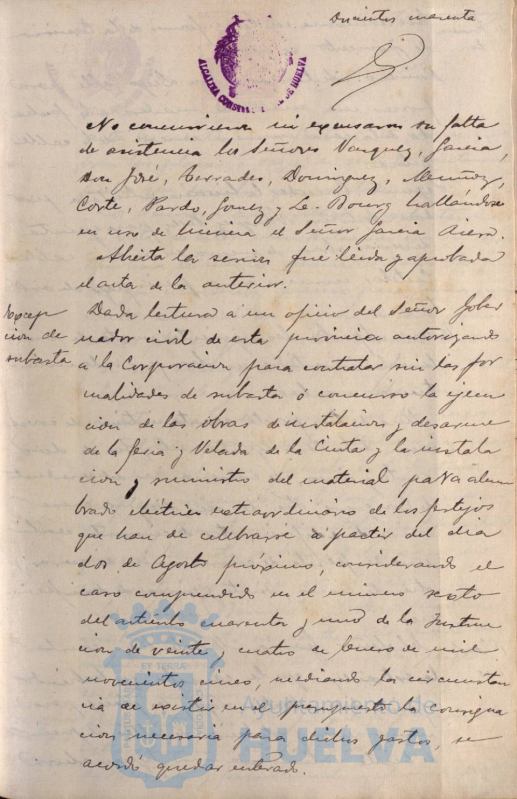 Doscientos cuarenta
ALCALDIA CONSTITUCIONAL DE HUELVA
No concurrieron ni excusaron su falta
de asistencia los Señores Vazquez, Garcia,
Don José, Terrades, Dominguez, Muñoz,
Corte, Pardo, Gomez y Le Bourg hallándose
en uso de licencia el Señor Garcia
Abierta la sesion fué leida y aprobada
el acta de la anterior.
Excep
cion de
subasta
Dada lectura á un oficio del Señor Gober
nador civil de esta provincia autorizando
á la Corporacion para contratar sin las for
malidades de subasta ó concurso la ejecu
cion de las obras de instalacion y desarme
de la feria y Velada de la Cinta y la instala
cion y suministro del material para alum
brado eléctrico extraordinario de los festejos
que han de celebrarse á partir del dia
dos de Agosto próximo, considerando el
caso comprendido en el número sexto
del artículo cuarenta y uno de la Instruc
cion de veinte y cuatro de Enero de mil
novecientos cinco, mediando la circunstan
cia de existir en el presupuesto la consigna
cion necesaria para dichos gastos, se
acordó quedar enterado.
Ayuntamiento de
HUELVA